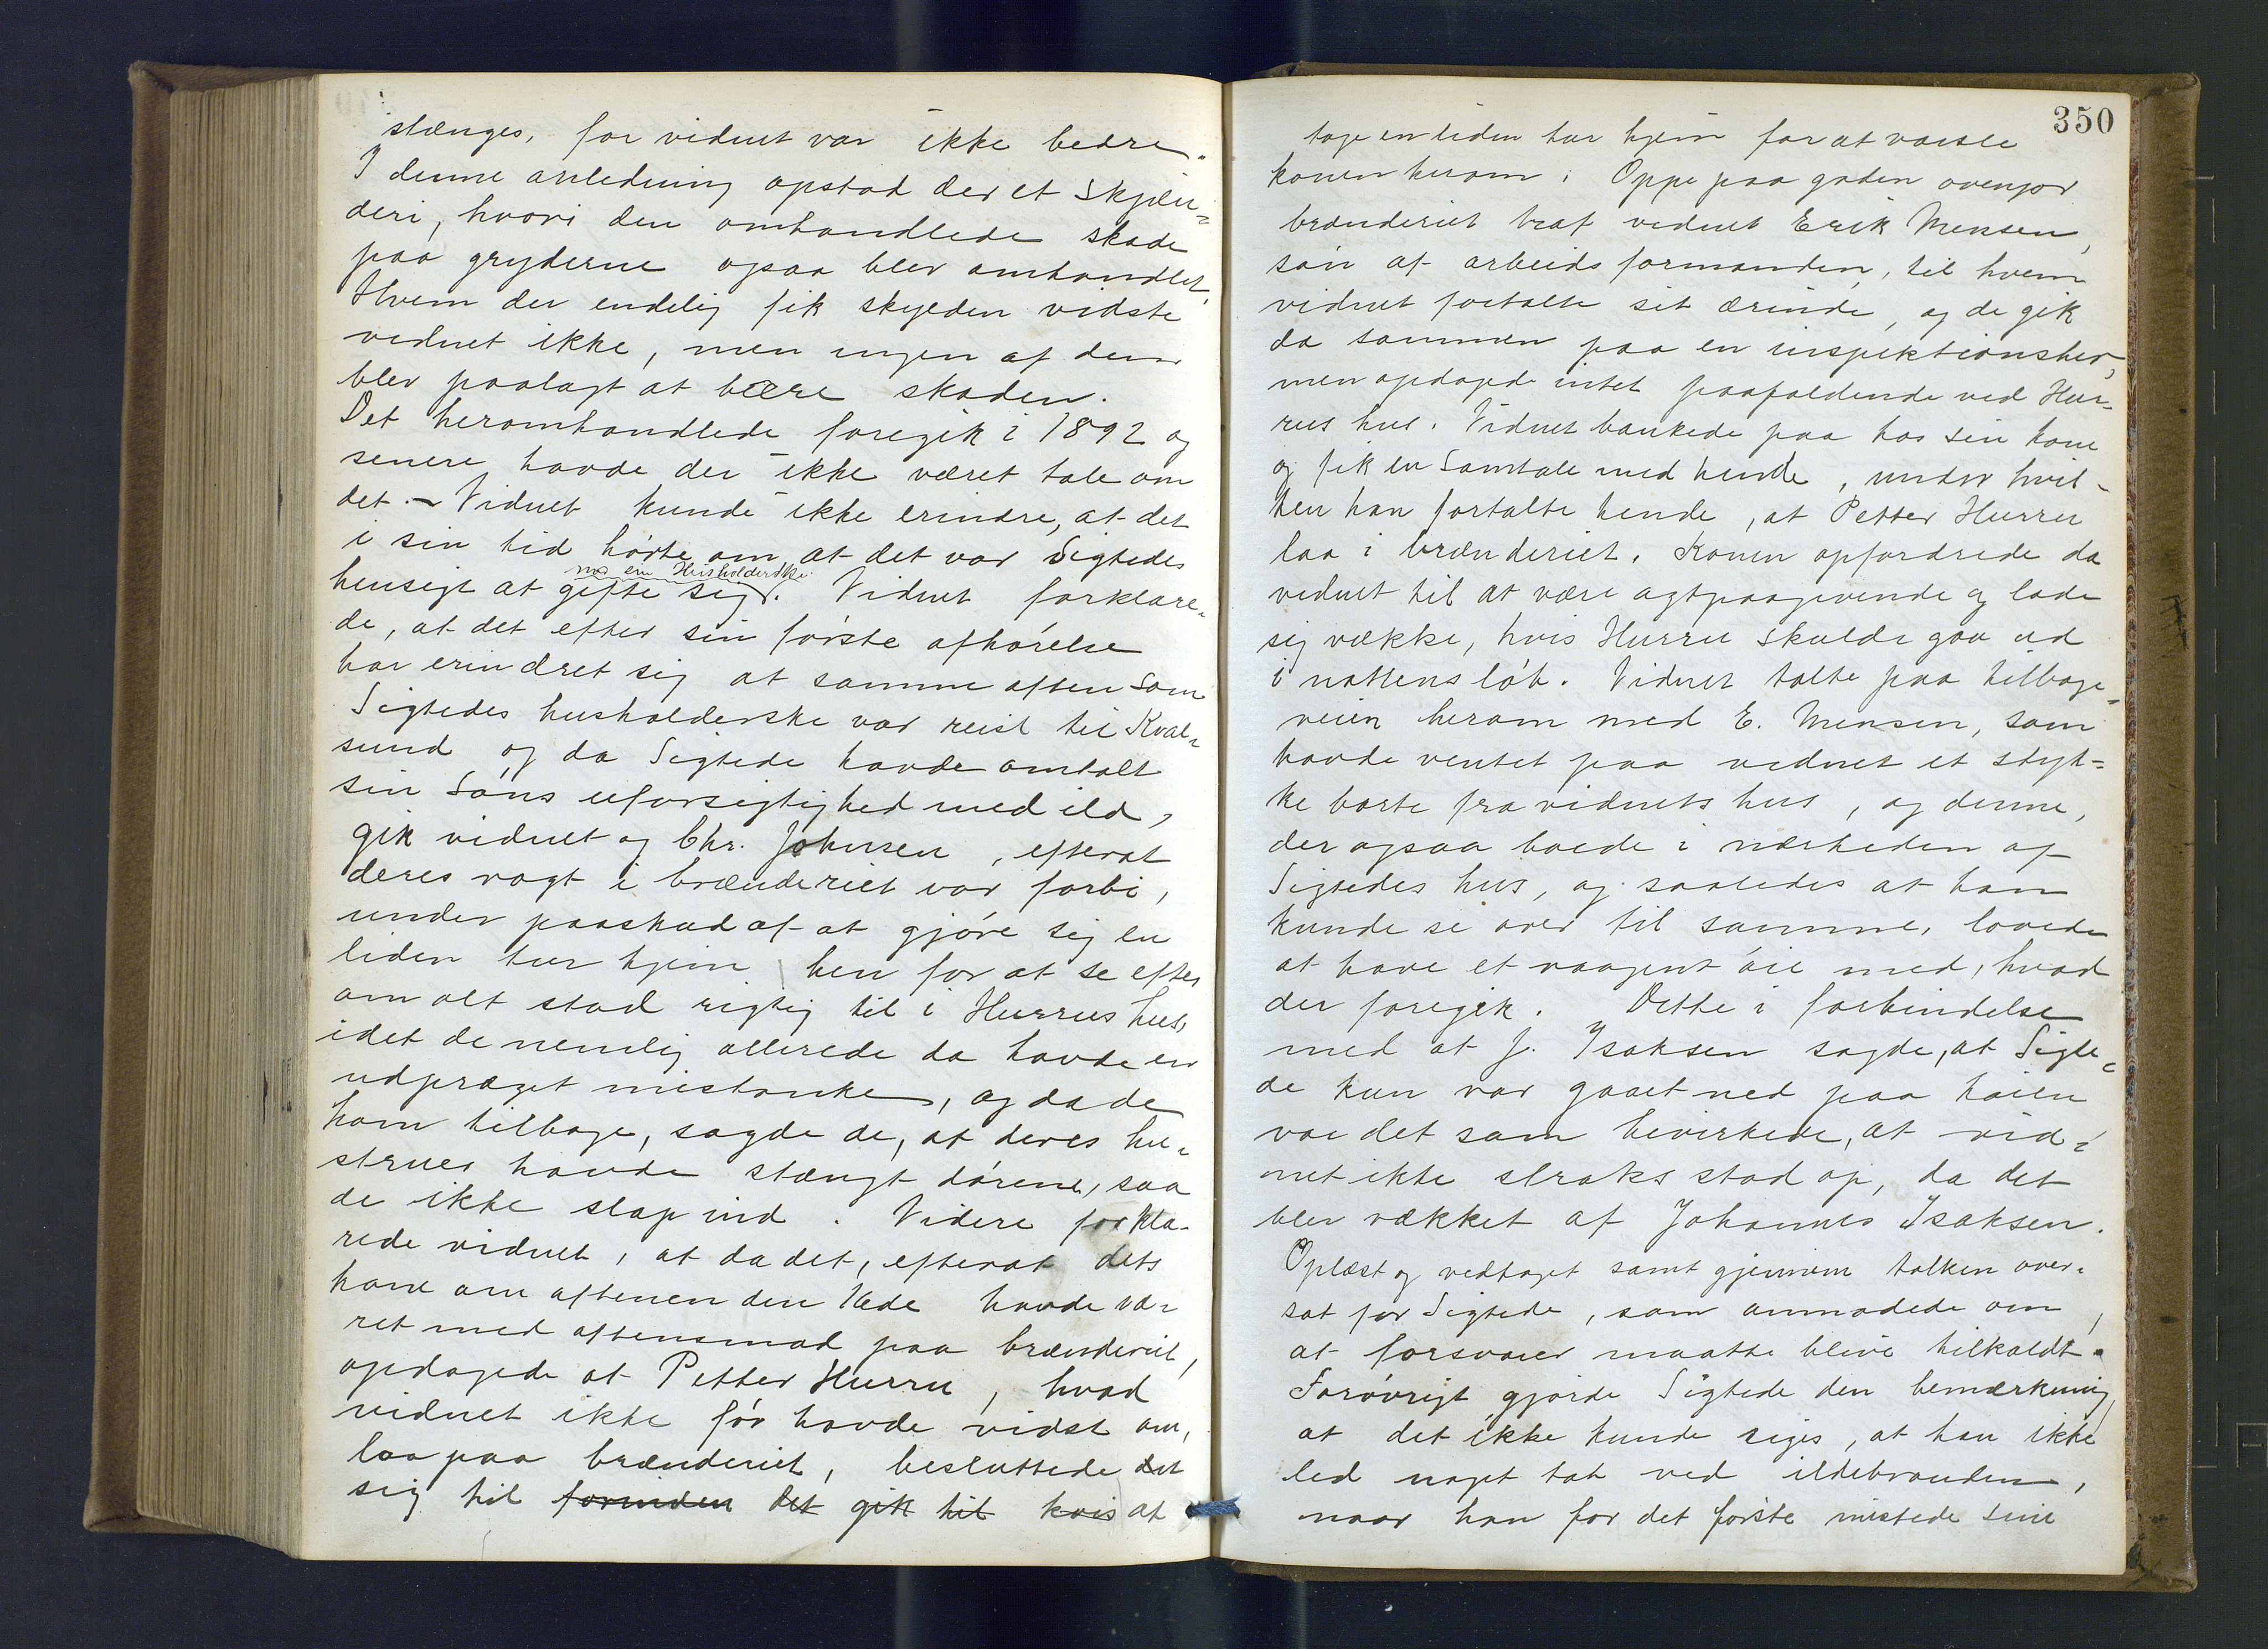 stænges, for vidnet var ikke bedre.
I denne anledning opstod der et Skjæn-
deri, hvori den omhandlede skade
paa gryderne ogsaa blev omhandlet.
Hvem der endelig fik skylden vidste
vidnet ikke, men ingen af dem
blev paalagt at bære skaden.
Det heromhandlede foregik i 1892 og
senere havde der ikke været tale om
det. - Vidnet kunde ikke erindre, at det
i sin tid hørte om at det var Sigtedes
med sin Husholderske
hensigt at gifte sig. Vidnet forklare-
de, at det efter sin første afhørelse
har erindret sig at samme aften som
Sigtedes husholderske var reist til Kval-
sund og da Sigtede havde omtalt
sin Søns uforsigtighed med ild,
gik vidnet og Chr. Johnsen, efterat
deres vagt i brænderiet var forbi,
under paaskud af at gjøre sig en
liden tur hjem hen for at se efter
om alt stod rigtig til i Hurrus hus,
idet de nemlig allerede da havde en
udpræget mistanke, og da de
kom tilbage, sagde de, at deres hu-
struer havde stængt dørene, saa
de ikke slap ind. Videre forkla-
rede vidnet, at da det, efterat dets
kone om aftenen den 16de havde væ-
ret med aftensmad paa brænderiet,
opdagede at Petter Hurru, hvad
vidnet ikke før havde vidst om,
laa paa brænderiet, besluttede det
sig til forinden det gik til kois at
350
tage en liden tur hjem for at varsle
konen herom. Oppe paa gaden ovenfor
brænderiet traf vidnet Erik Mensen,
søn af arbeidsformanden, til hvem
vidnet fortalte sit ærinde, og de gik
da sammen paa en inspektionstur,
men opdagede intet paafaldende ved Hur-
rus hus. Vidnet bankede paa hos sin kone
og fik en Samtale med hende, under hvil-
ken han fortalte hende, at Petter Hurru
laa i brænderiet. Konen opfordrede da
vidnet til at være agtpaagivende og lade
sig vække, hvis Hurru skulde gaa ud
i nattens løb. Vidnet talte paa tilbage-
veien herom med E. Mensen, som
havde ventet paa vidnet et styk-
ke borte fra vidnets hus, og denne,
der ogsaa boede i nærheden af
Sigtedes hus, og saaledes at han
kunde se over til samme, lovede
at have et vaagent øie med, hvad
der foregik. Dette i forbindelse
med at J. Isaksen sagde, at Sigte-
de kun var gaaet ned paa kaien
var det som bevirkede, at vid-
net ikke straks stod op, da det
blev vækket af Johannes Isaksen.
Oplæst og vedtaget samt gjennem tolken over-
sat for Sigtede, som anmodede om,
at forsvarer maatte blive tilkaldt.
Forøvrigt gjorde Sigtede den bemærkning,
at det ikke kunde siges, at han ikke
led noget tab ved ildebranden,
naar han for det første mistede sine